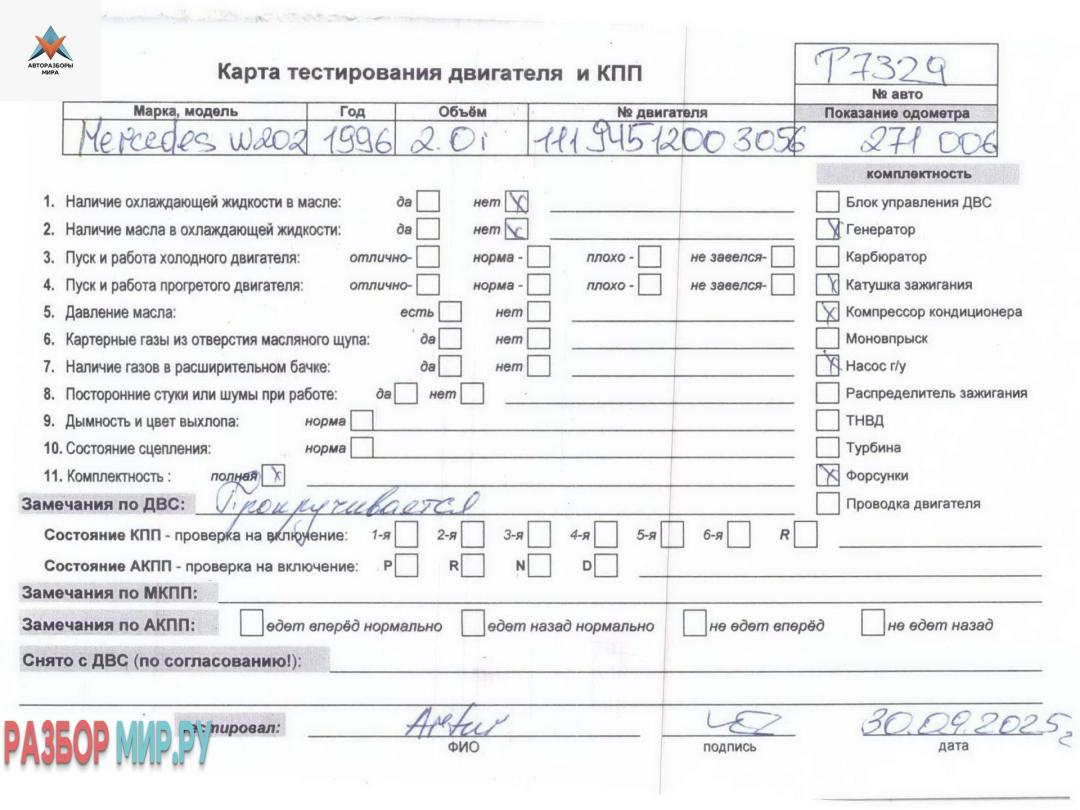 АВТОРАЗБОРЫ
МИРА
Карта тестирования двигателя и КПП
P7329
№ авто
Марка, модель Год Объём № двигателя Показание одометра
Mercedes W202 1996 2.0i 111 945 12003056 271 006
комплектность
1. Наличие охлаждающей жидкости в масле: да нет Блок управления ДВС
2. Наличие масла в охлаждающей жидкости: да нет Генератор
3. Пуск и работа холодного двигателя: отлично- норма - плохо - не завелся- Карбюратор
4. Пуск и работа прогретого двигателя: отлично- норма - плохо - не завелся- Катушка зажигания
5. Давление масла: есть нет Компрессор кондиционера
6. Картерные газы из отверстия масляного щупа: да нет Моновпрыск
7. Наличие газов в расширительном бачке: да нет Насос г/у
8. Посторонние стуки или шумы при работе: да нет Распределитель зажигания
9. Дымность и цвет выхлопа: норма ТНВД
10. Состояние сцепления: норма Турбина
11. Комплектность : полная Форсунки
Замечания по ДВС: Прокручивается Проводка двигателя
Состояние КПП - проверка на включение: 1-я 2-я 3-я 4-я 5-я 6-я R
Состояние АКПП - проверка на включение: P R N D
Замечания по МКПП:
Замечания по АКПП: едет вперёд нормально едет назад нормально не едет вперёд не едет назад
Снято с ДВС (по согласованию!):
тестировал: Artur 30.09.2025г
ФИО подпись дата
РАЗБОР МИР.РУ